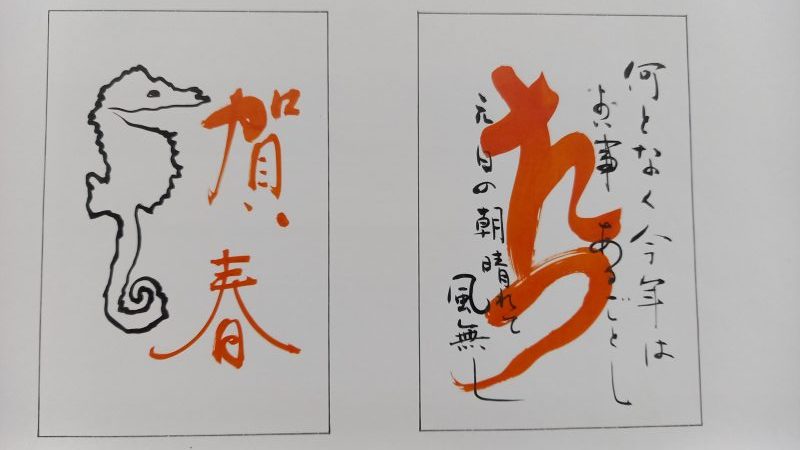 賀春
何となく今年は
よい事あるごとし
たつ
元日の朝
晴れて
風無し